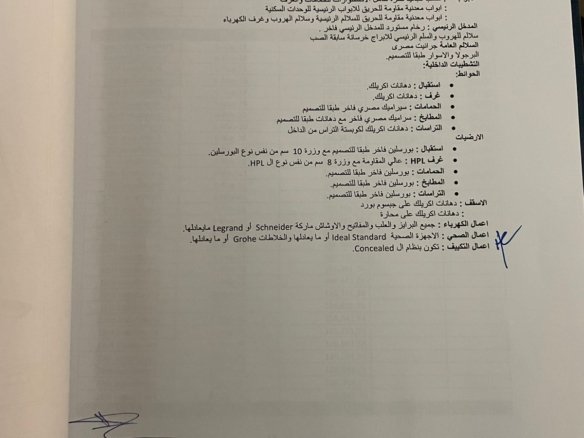 : ابواب معدنية مقاومة للحريق للابواب الرئيسية للوحدات السكنية
: ابواب معدنية مقاومة للحريق للسلالم الرئيسية وسلالم الهروب وغرف الكهرباء
المدخل الرئيسي : رخام مستورد للمدخل الرئيسي فاخر .
سلالم للهروب والسلم الرئيسي للابراج خرسانة سابقة الصب
السلالم العامة جرانيت مصرى
البرجولا والاسوار طبقا للتصميم.
التشطيبات الداخلية:
الحوائط:
• استقبال : دهانات اكريلك.
• غرف : دهانات اكريلك.
• الحمامات : سيراميك مصري فاخر طبقا للتصميم
• المطابخ : سراميك مصري فاخر مع دهانات طبقا للتصميم
• التراسات : دهانات اكريلك لكوبستة التراس من الداخل
الارضيات
• استقبال : بورسلين فاخر طبقا للتصميم مع وزرة 10 سم من نفس نوع البورسلين.
• غرف HPL : عالي المقاومة مع وزرة 8 سم من نفس نوع ال HPL.
• الحمامات : بورسلين فاخر طبقا للتصميم.
• المطابخ : بورسلين فاخر طبقا للتصميم.
• التراسات : بورسلين فاخر طبقا للتصميم.
الاسقف : دهانات اكريلك على جبسوم بورد
: دهانات اكريلك على محارة
اعمال الكهرباء : جميع البرايز والعلب والمفاتيح والاوشاش ماركة Schneider أو Legrand مايعادلها.
اعمال الصحي : الاجهزة الصحية Ideal Standard أو ما يعادلها والخلاطات Grohe أو ما يعادلها.
اعمال التكييف : تكون بنظام ال Concealed.